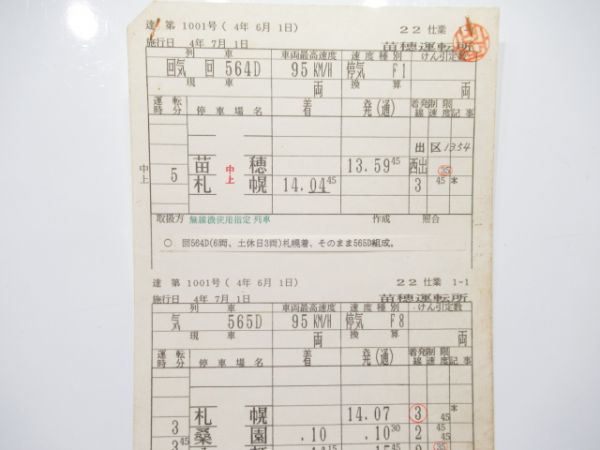 達 第 1001号 ( 4年 6月 1日) 22 仕業
施行日 4年 7月 1日 苗穂運転所
列 車 車両最高速度 速度種別 けん引定数
回気 回 564D 95KM/H 停気 F1 両
現 車 両 換 算 両
運転時分 停車場名 着 発(通) 着発線 制限速度 記事
出区1354
5 苗穂 13.59 45 西出 35
中上 札幌 中上 14.04 45 3 45 *
取扱方 無線機使用指定列車 作成 照合
○ 回564D(6両、土休日3両)札幌着、そのまま565D組成。
達 第 1001号 ( 4年 6月 1日) 22 仕業 1-1
施行日 4年 7月 1日 苗穂運転所
列 車 車両最高速度 速度種別 けん引定数
気 565D 95KM/H 停気 F8
現 車 両 換 算 両
運転時分 停車場名 着 発(通) 着発線 制限速度 記事
札幌 14.07 3 45 *
3 桑園 .10 .10 30 2 45